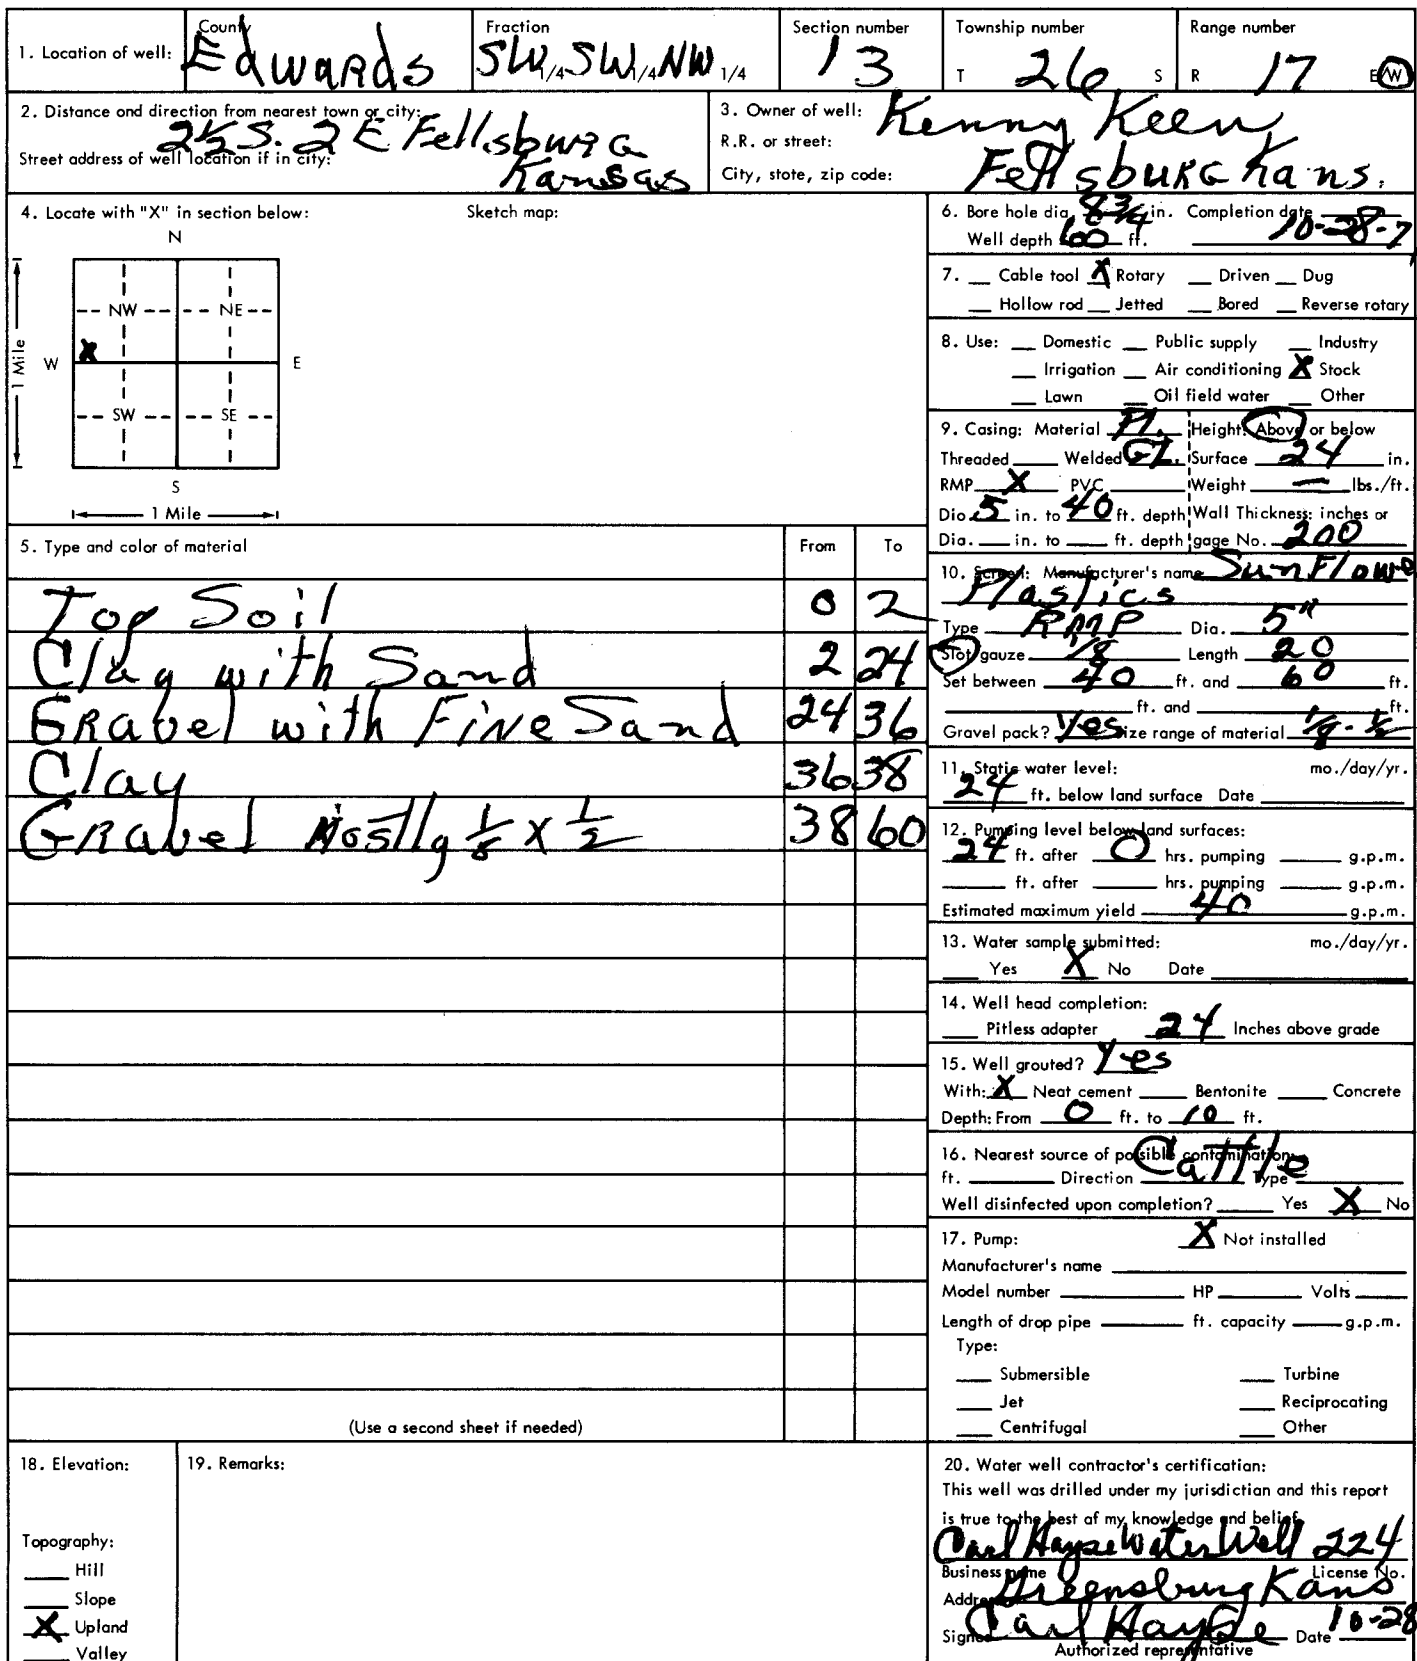 1. Location of well: County Edwards Fraction SW 1/4 SW 1/4 NW 1/4 Section number 13 Township number T 26 S Range number R 17 E/W
2. Distance and direction from nearest town or city: 2½ S. 2 E Fellsburg
Street address of well location if in city: Kansas
3. Owner of well: Kenny Keen
R.R. or street:
City, state, zip code: Fellsburg Kans.
4. Locate with "X" in section below: Sketch map:
N
NW NE
X
W E
1 Mile
SW SE
S
1 Mile
5. Type and color of material From To
Top Soil 0 2
Clay with Sand 2 24
Gravel with Fine Sand 24 36
Clay 36 38
Gravel Mostly 1/8 X 1/2 38 60
(Use a second sheet if needed)
6. Bore hole dia. 8 3/4 in. Completion date
Well depth 60 ft. 10-28-7
7. Cable tool X Rotary Driven Dug
Hollow rod Jetted Bored Reverse rotary
8. Use: Domestic Public supply Industry
Irrigation Air conditioning X Stock
Lawn Oil field water Other
9. Casing: Material Pl. Height: Above or below
Threaded Welded GL. Surface 24 in.
RMP X PVC Weight — lbs./ft.
Dia. 5 in. to 40 ft. depth Wall Thickness: inches or
Dia. in. to ft. depth gage No. 200
10. Screen: Manufacturer's name SunFlowe
Plastics
Type RMP Dia. 5"
Slot gauze 1/8 Length 20
Set between 40 ft. and 60 ft.
ft. and ft.
Gravel pack? Yes Size range of material 1/8 - 1/2
11. Static water level: mo./day/yr.
24 ft. below land surface Date
12. Pumping level below land surfaces:
24 ft. after 0 hrs. pumping g.p.m.
ft. after hrs. pumping g.p.m.
Estimated maximum yield 40 g.p.m.
13. Water sample submitted: mo./day/yr.
Yes X No Date
14. Well head completion:
Pitless adapter 24 Inches above grade
15. Well grouted? Yes
With: X Neat cement Bentonite Concrete
Depth: From 0 ft. to 10 ft.
16. Nearest source of possible contamination: Cattle
ft. Direction Type
Well disinfected upon completion? Yes X No
17. Pump: X Not installed
Manufacturer's name
Model number HP Volts
Length of drop pipe ft. capacity g.p.m.
Type:
Submersible Turbine
Jet Reciprocating
Centrifugal Other
18. Elevation:
Topography:
Hill
Slope
X Upland
Valley
19. Remarks:
20. Water well contractor's certification:
This well was drilled under my jurisdiction and this report
is true to the best of my knowledge and belief.
Carl Hayse Water Well 224
Business name License No.
Address Greensburg Kans
Signed Carl Hayse Date 10-28
Authorized representative